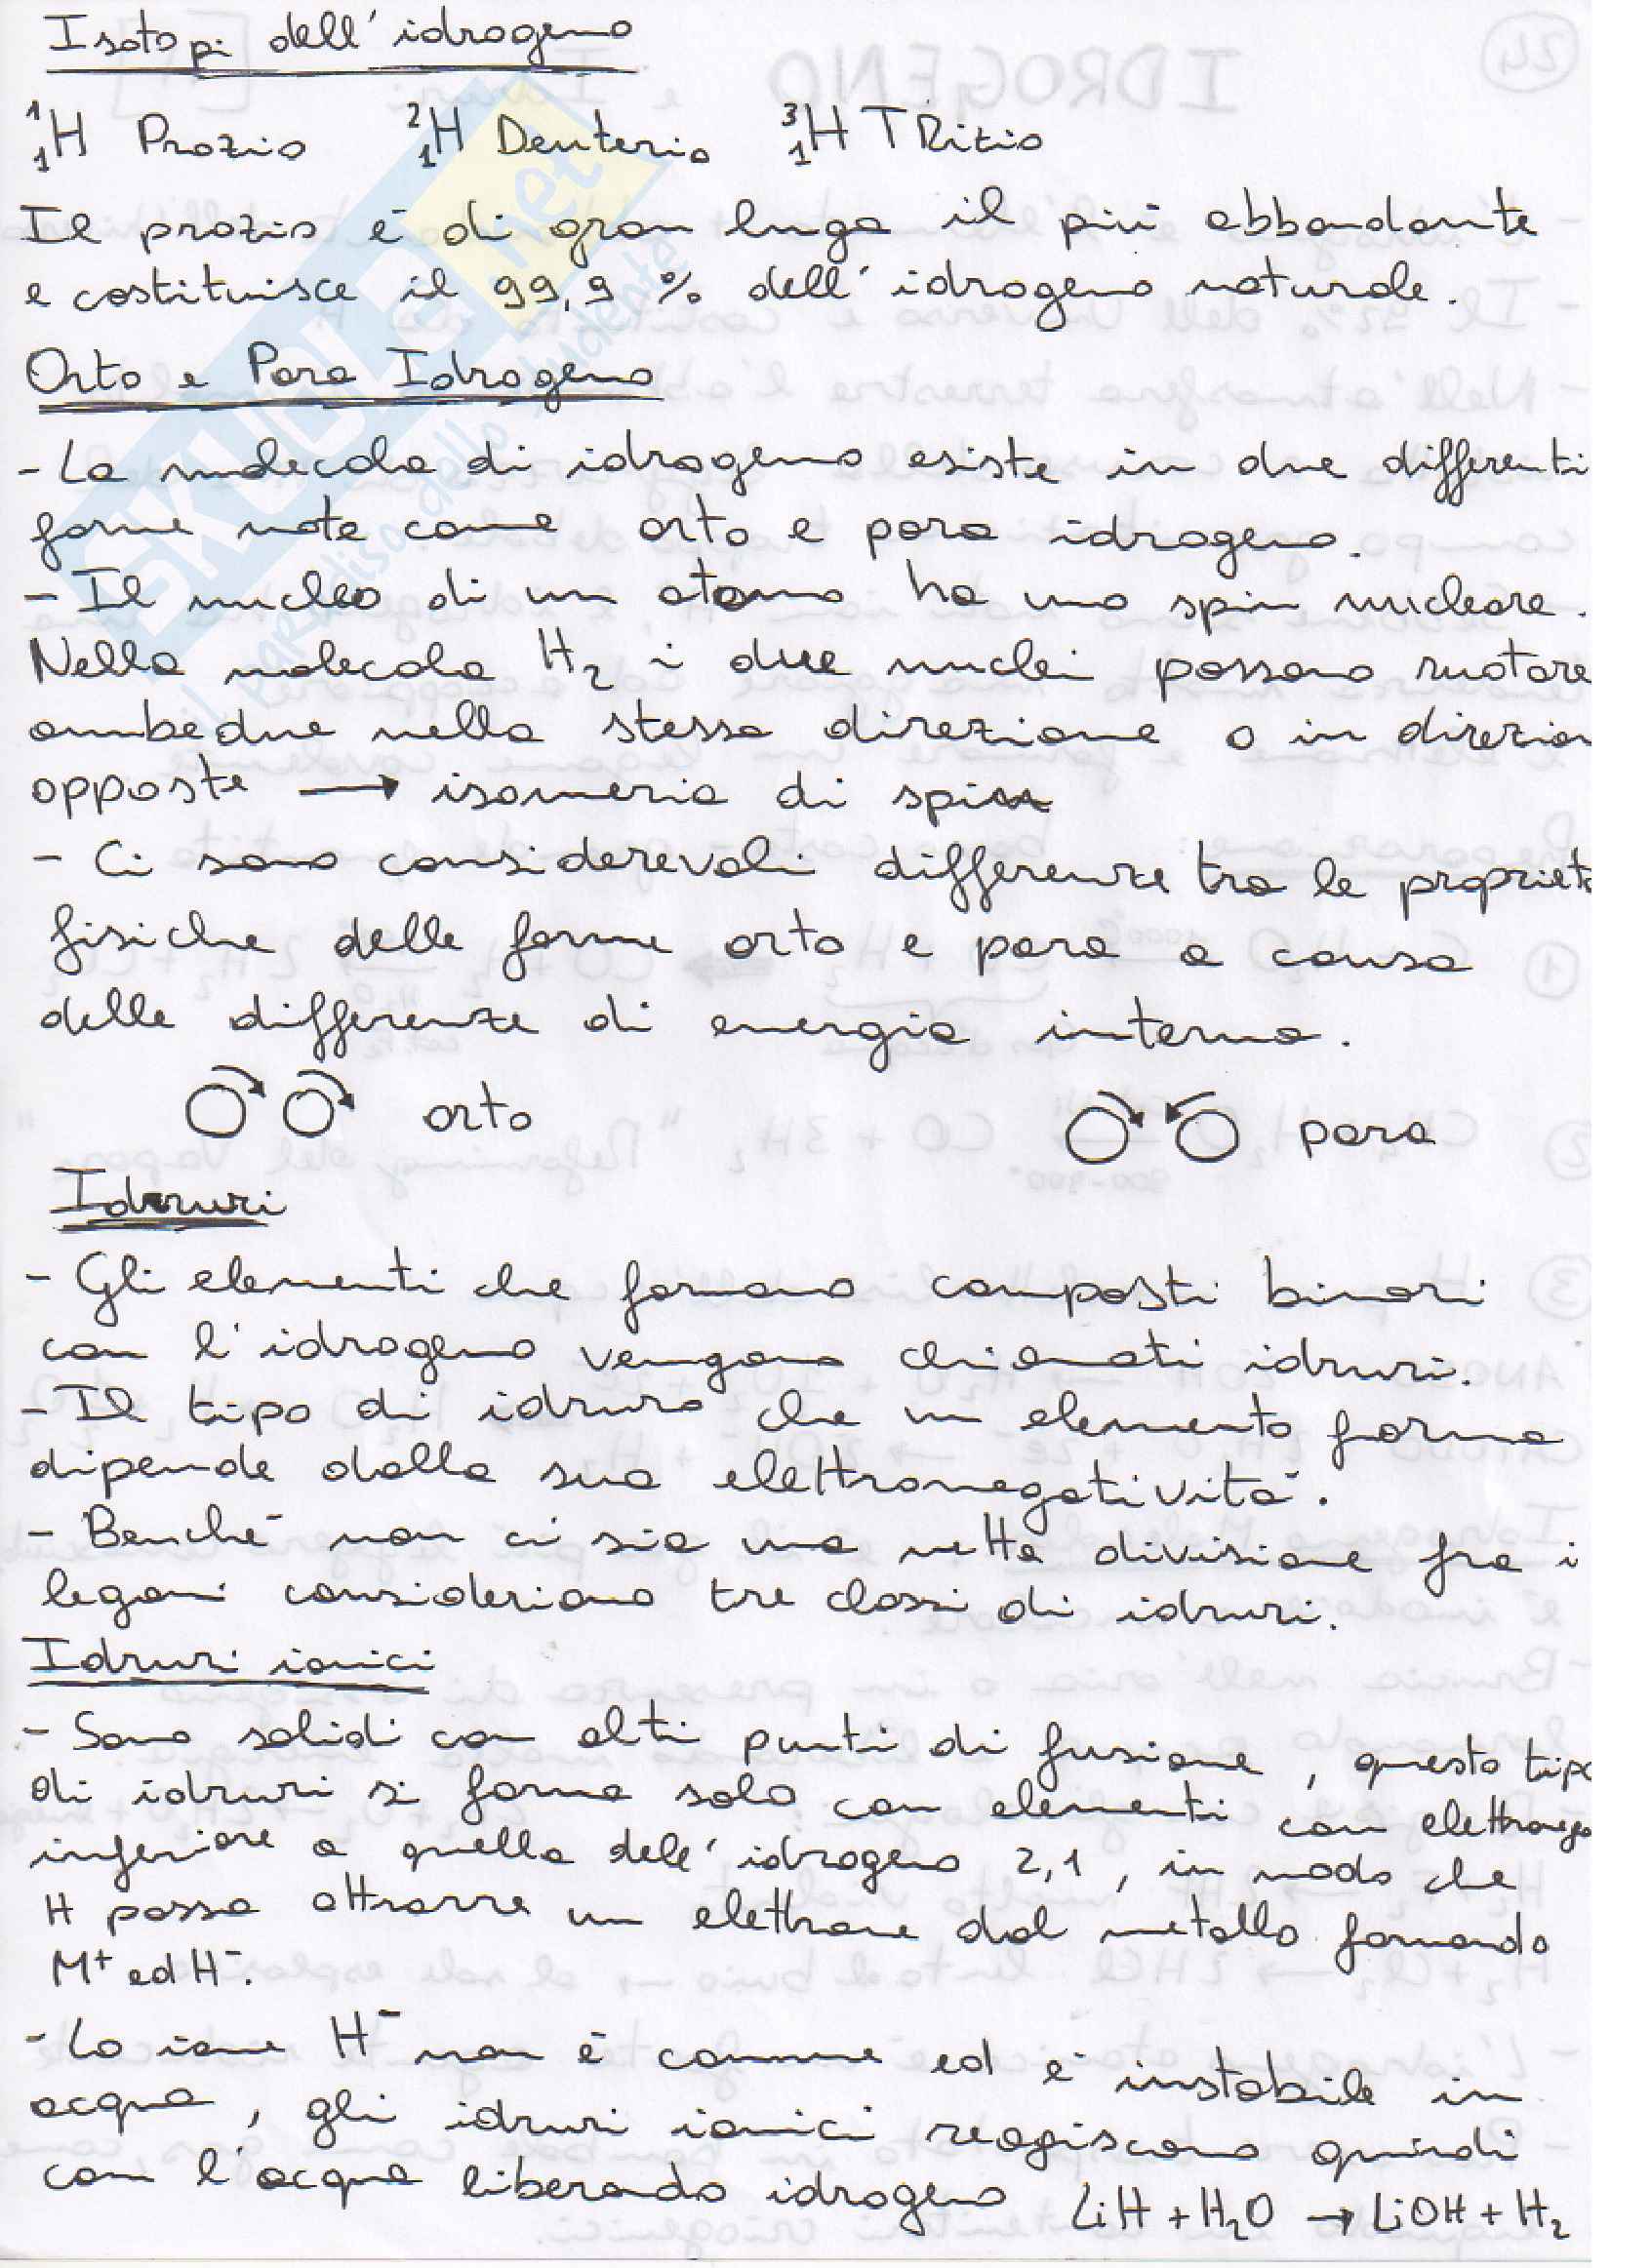 Isotopi dell'idrogeno
¹₁H Prozio ²₁H Deuterio ³₁H TRitio
Il prozio è di gran lunga il più abbondante
e costituisce il 99,9 % dell'idrogeno naturale.
Orto e Para Idrogeno
- La molecola di idrogeno esiste in due differenti
forme note come orto e para idrogeno.
- Il nucleo di un atomo ha uno spin nucleare.
Nella molecola H₂ i due nuclei possono ruotare
ambedue nella stessa direzione o in direzion
opposte → isomeria di spin
- Ci sono considerevoli differenze tra le propriet
fisiche delle forme orto e para a causa
delle differenze di energia interna.
orto para
Idruri
- Gli elementi che formano composti binari
con l'idrogeno vengono chiamati idruri.
- Il tipo di idruro che un elemento forma
dipende dalla sua elettronegatività.
- Benché non ci sia una netta divisione fra i
legami consideriamo tre classi di idruri.
Idruri ionici
- Sono solidi con alti punti di fusione, questo tipo
di idruri si forma solo con elementi con elettronega
inferiore a quella dell'idrogeno 2,1, in modo che
H possa attrarre un elettrone dal metallo formando
M⁺ ed H⁻.
- Lo ione H⁻ non è comune ed è instabile in
acqua, gli idruri ionici reagiscono quindi
con l'acqua liberando idrogeno LiH + H₂O → LiOH + H₂
SKUOLA.net
il paradiso dello studente